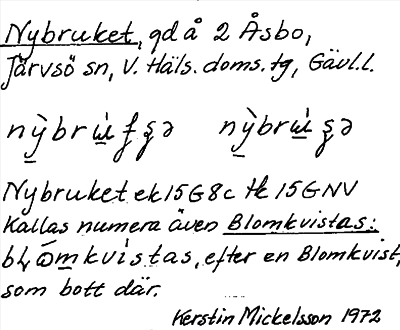 Nybruket, gd å 2 Åsbo,
Järvsö sn, V. Häls. doms. tg, Gävl.l.
Nybruket ek 15G8c tk 15GNV
Kallas numera även Blomkvistas:
efter en Blomkvist,
som bott där.
Kerstin Mickelsson 1972